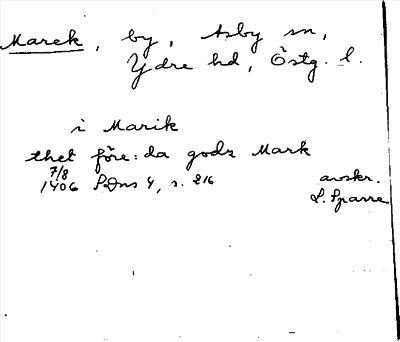 Marek, by, Asby sn,
Ydre hd, Östg. l.
i Marik
thet före: da godz Mark
7/8
1406 SDns 4, s. 216
avskr.
L. Sparre